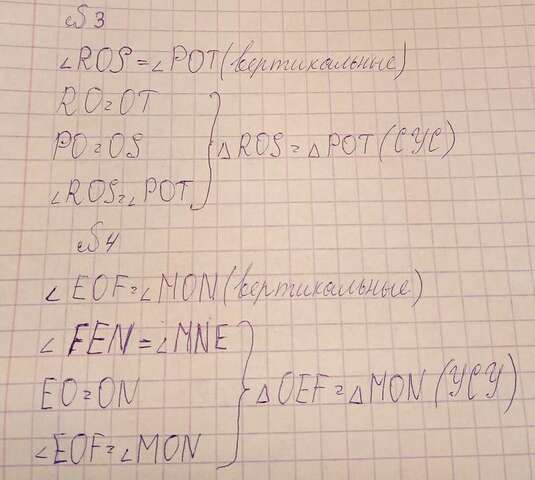 №3
∠ROS = ∠POT (вертикальные)
RO = OT
PO = OS
∠ROS = ∠POT
ΔROS = ΔPOT (СУС)
№4
∠EOF = ∠MON (вертикальные)
∠FEN = ∠MNE
EO = ON
∠EOF = ∠MON
ΔOEF = ΔMON (УСУ)